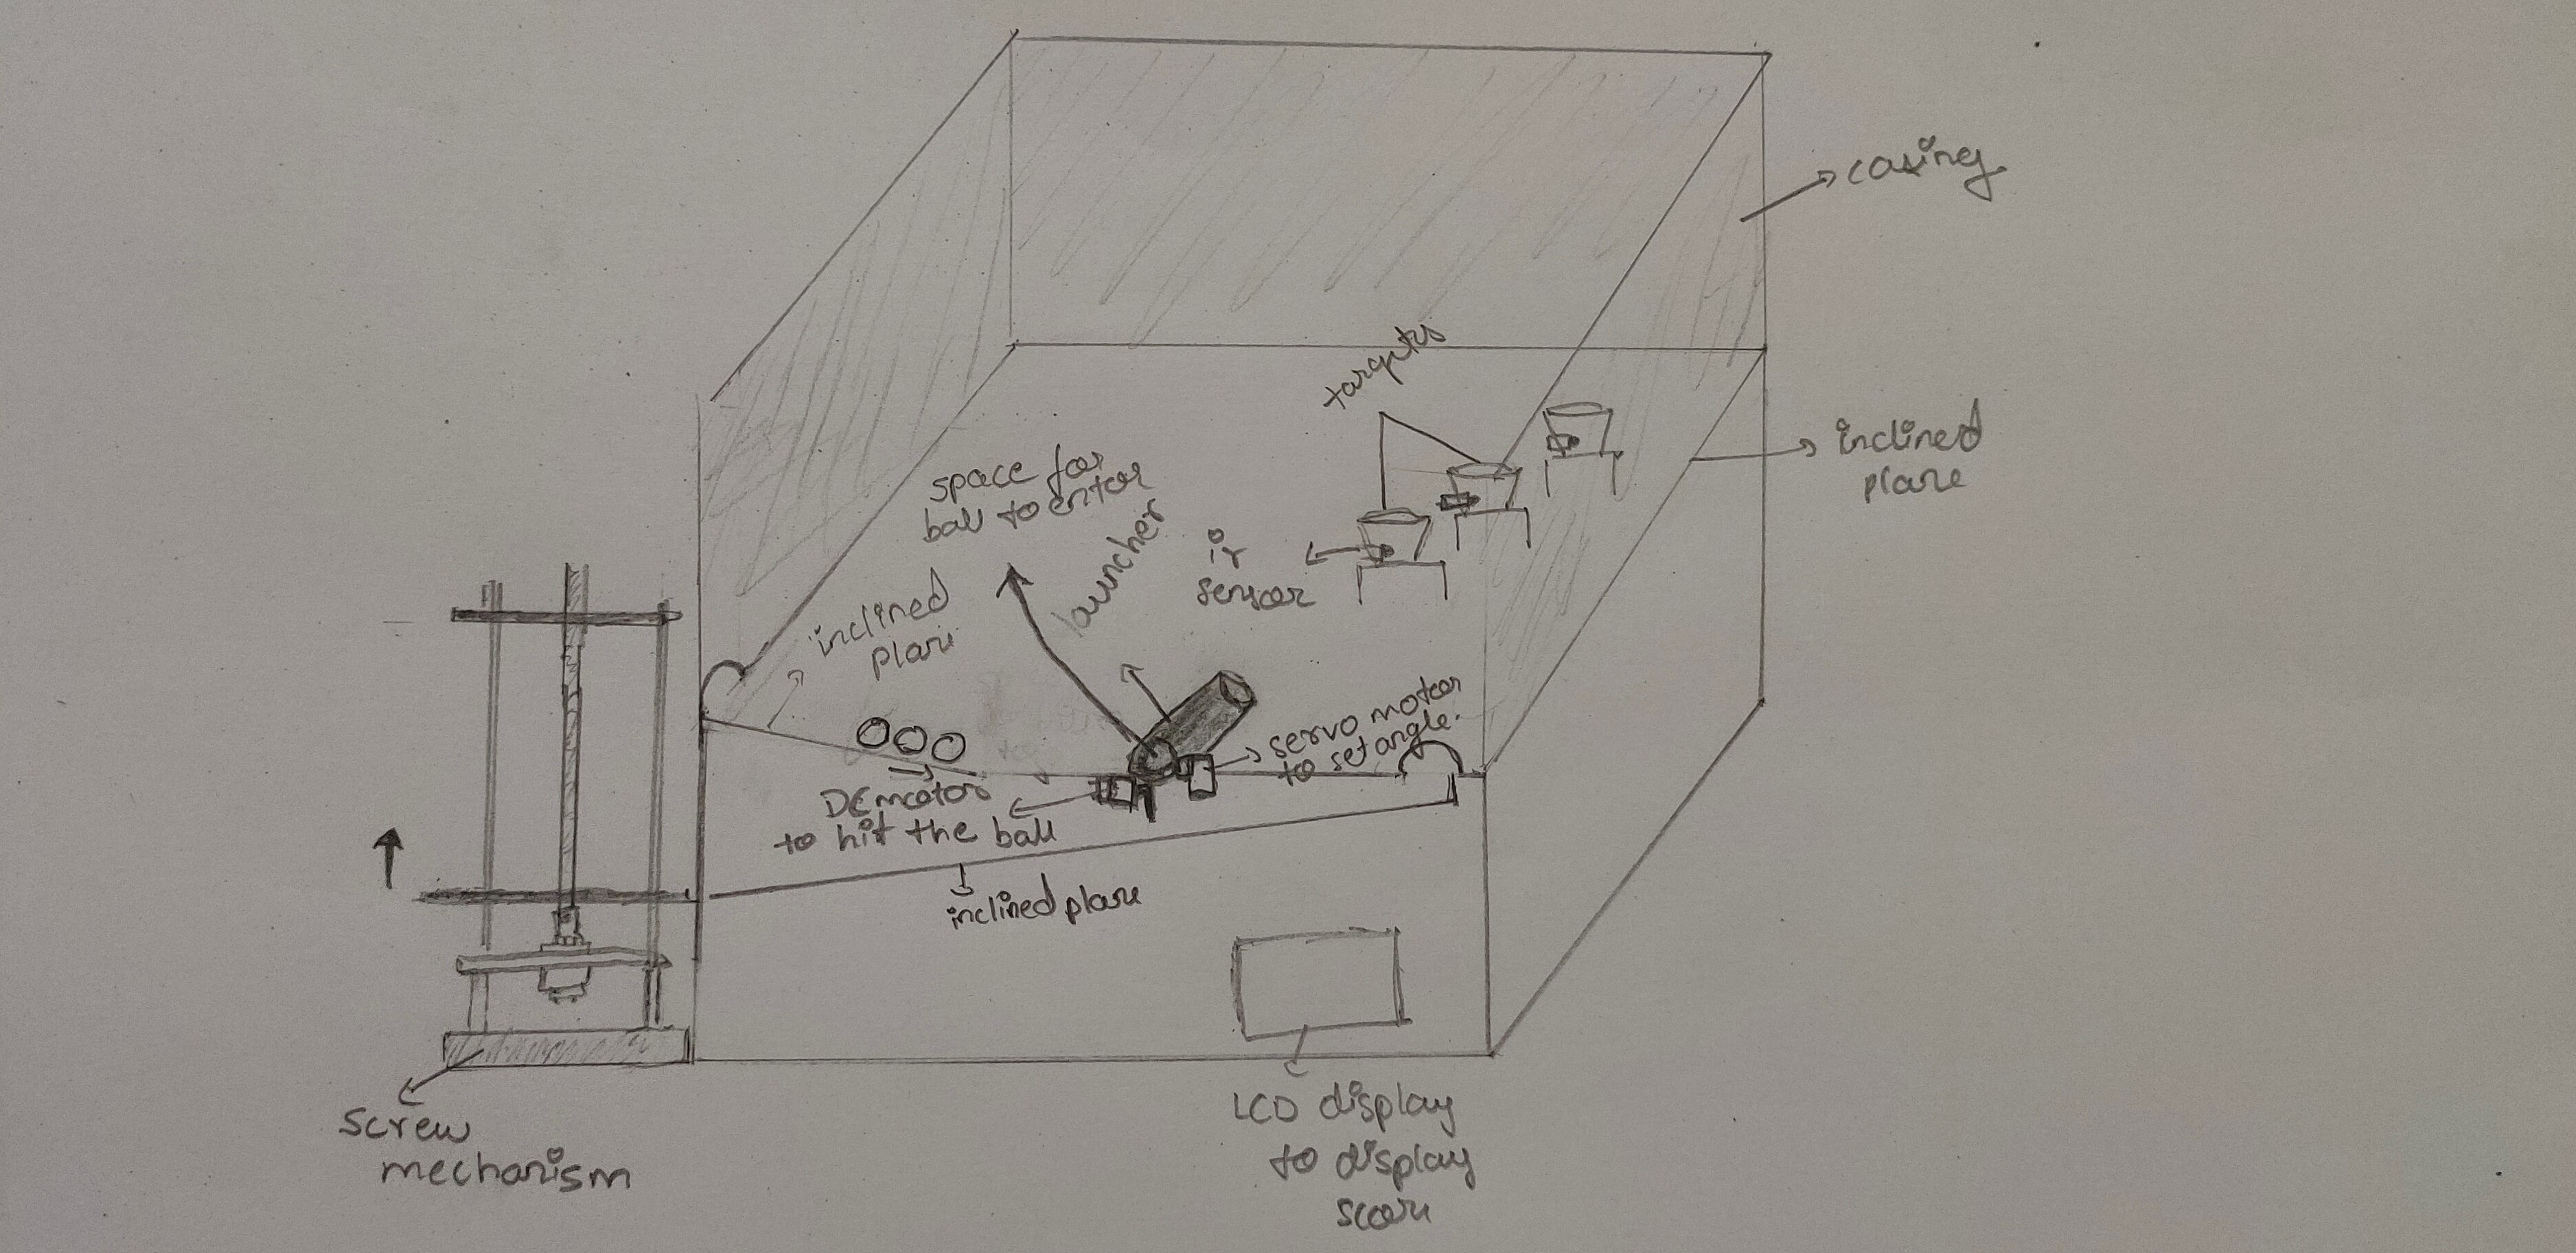 casing
targets
inclined
plane
space for
ball to enter
launcher
ir
sensor
inclined
plane
servo motor
to set angle.
DC motor
to hit the ball
inclined plane
screw
mechanism
LCD display
to display
score